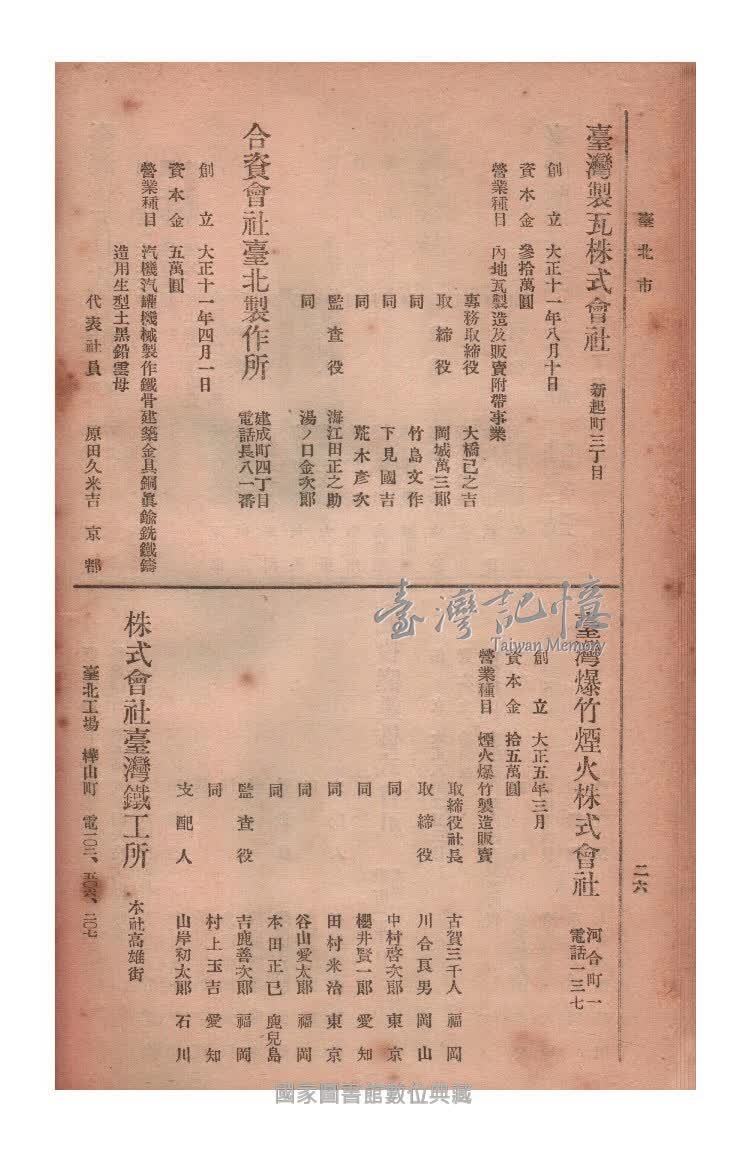 臺北市
二六
臺灣製瓦株式會社 新起町三丁目
創立 大正十一年八月十日
資本金 參拾萬圓
營業種目 內地瓦製造及販賣附帶事業
專務取締役 大橋已之吉
取締役 岡城萬三郞
同 竹島文作
同 下見國吉
同 荒木彥次
監查役 海江田正之助
同 湯ノ口金次郞
合資會社臺北製作所 建成町四丁目
電話長八一番
創立 大正十一年四月一日
資本金 五萬圓
營業種目 汽機汽罐機械製作鐵骨建築金具銅眞鍮銑鐵鑄
造用生型土黑鉛雲母
代表社員 原田久米吉 京都
臺灣爆竹煙火株式會社 河合町一
電話一三七
創立 大正五年三月
資本金 拾五萬圓
營業種目 煙火爆竹製造販賣
取締役社長 古賀三千人 福岡
取締役 川合良男 岡山
同 中村啓次郞 東京
同 櫻井賢一郞 愛知
同 田村米治 東京
同 谷山愛太郞 福岡
同 本田正已 鹿兒島
監查役 吉鹿善次郞 福岡
同 村上玉吉 愛知
支配人 山岸初太郞 石川
株式會社臺灣鐵工所 本社高雄街
臺北工場 樺山町 電一〇三、五〇六、二〇七
臺灣記憶
Taiwan Memory
國家圖書館數位典藏